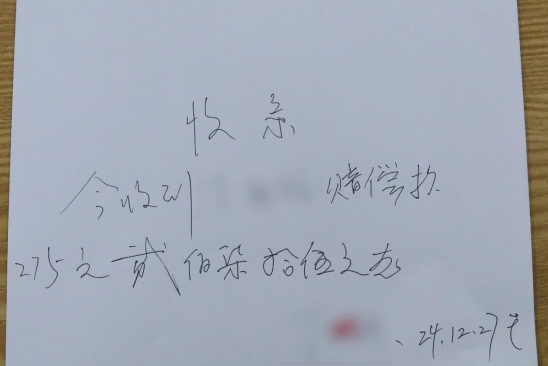 收条
今收到 赔偿款
275元 贰佰柒拾伍元
24.12.27